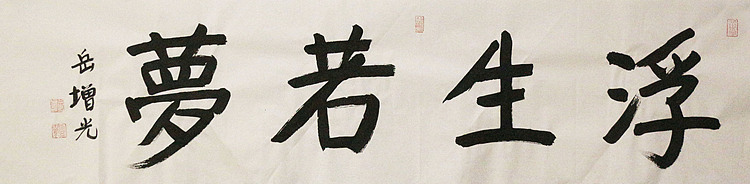 浮生若夢
岳增光